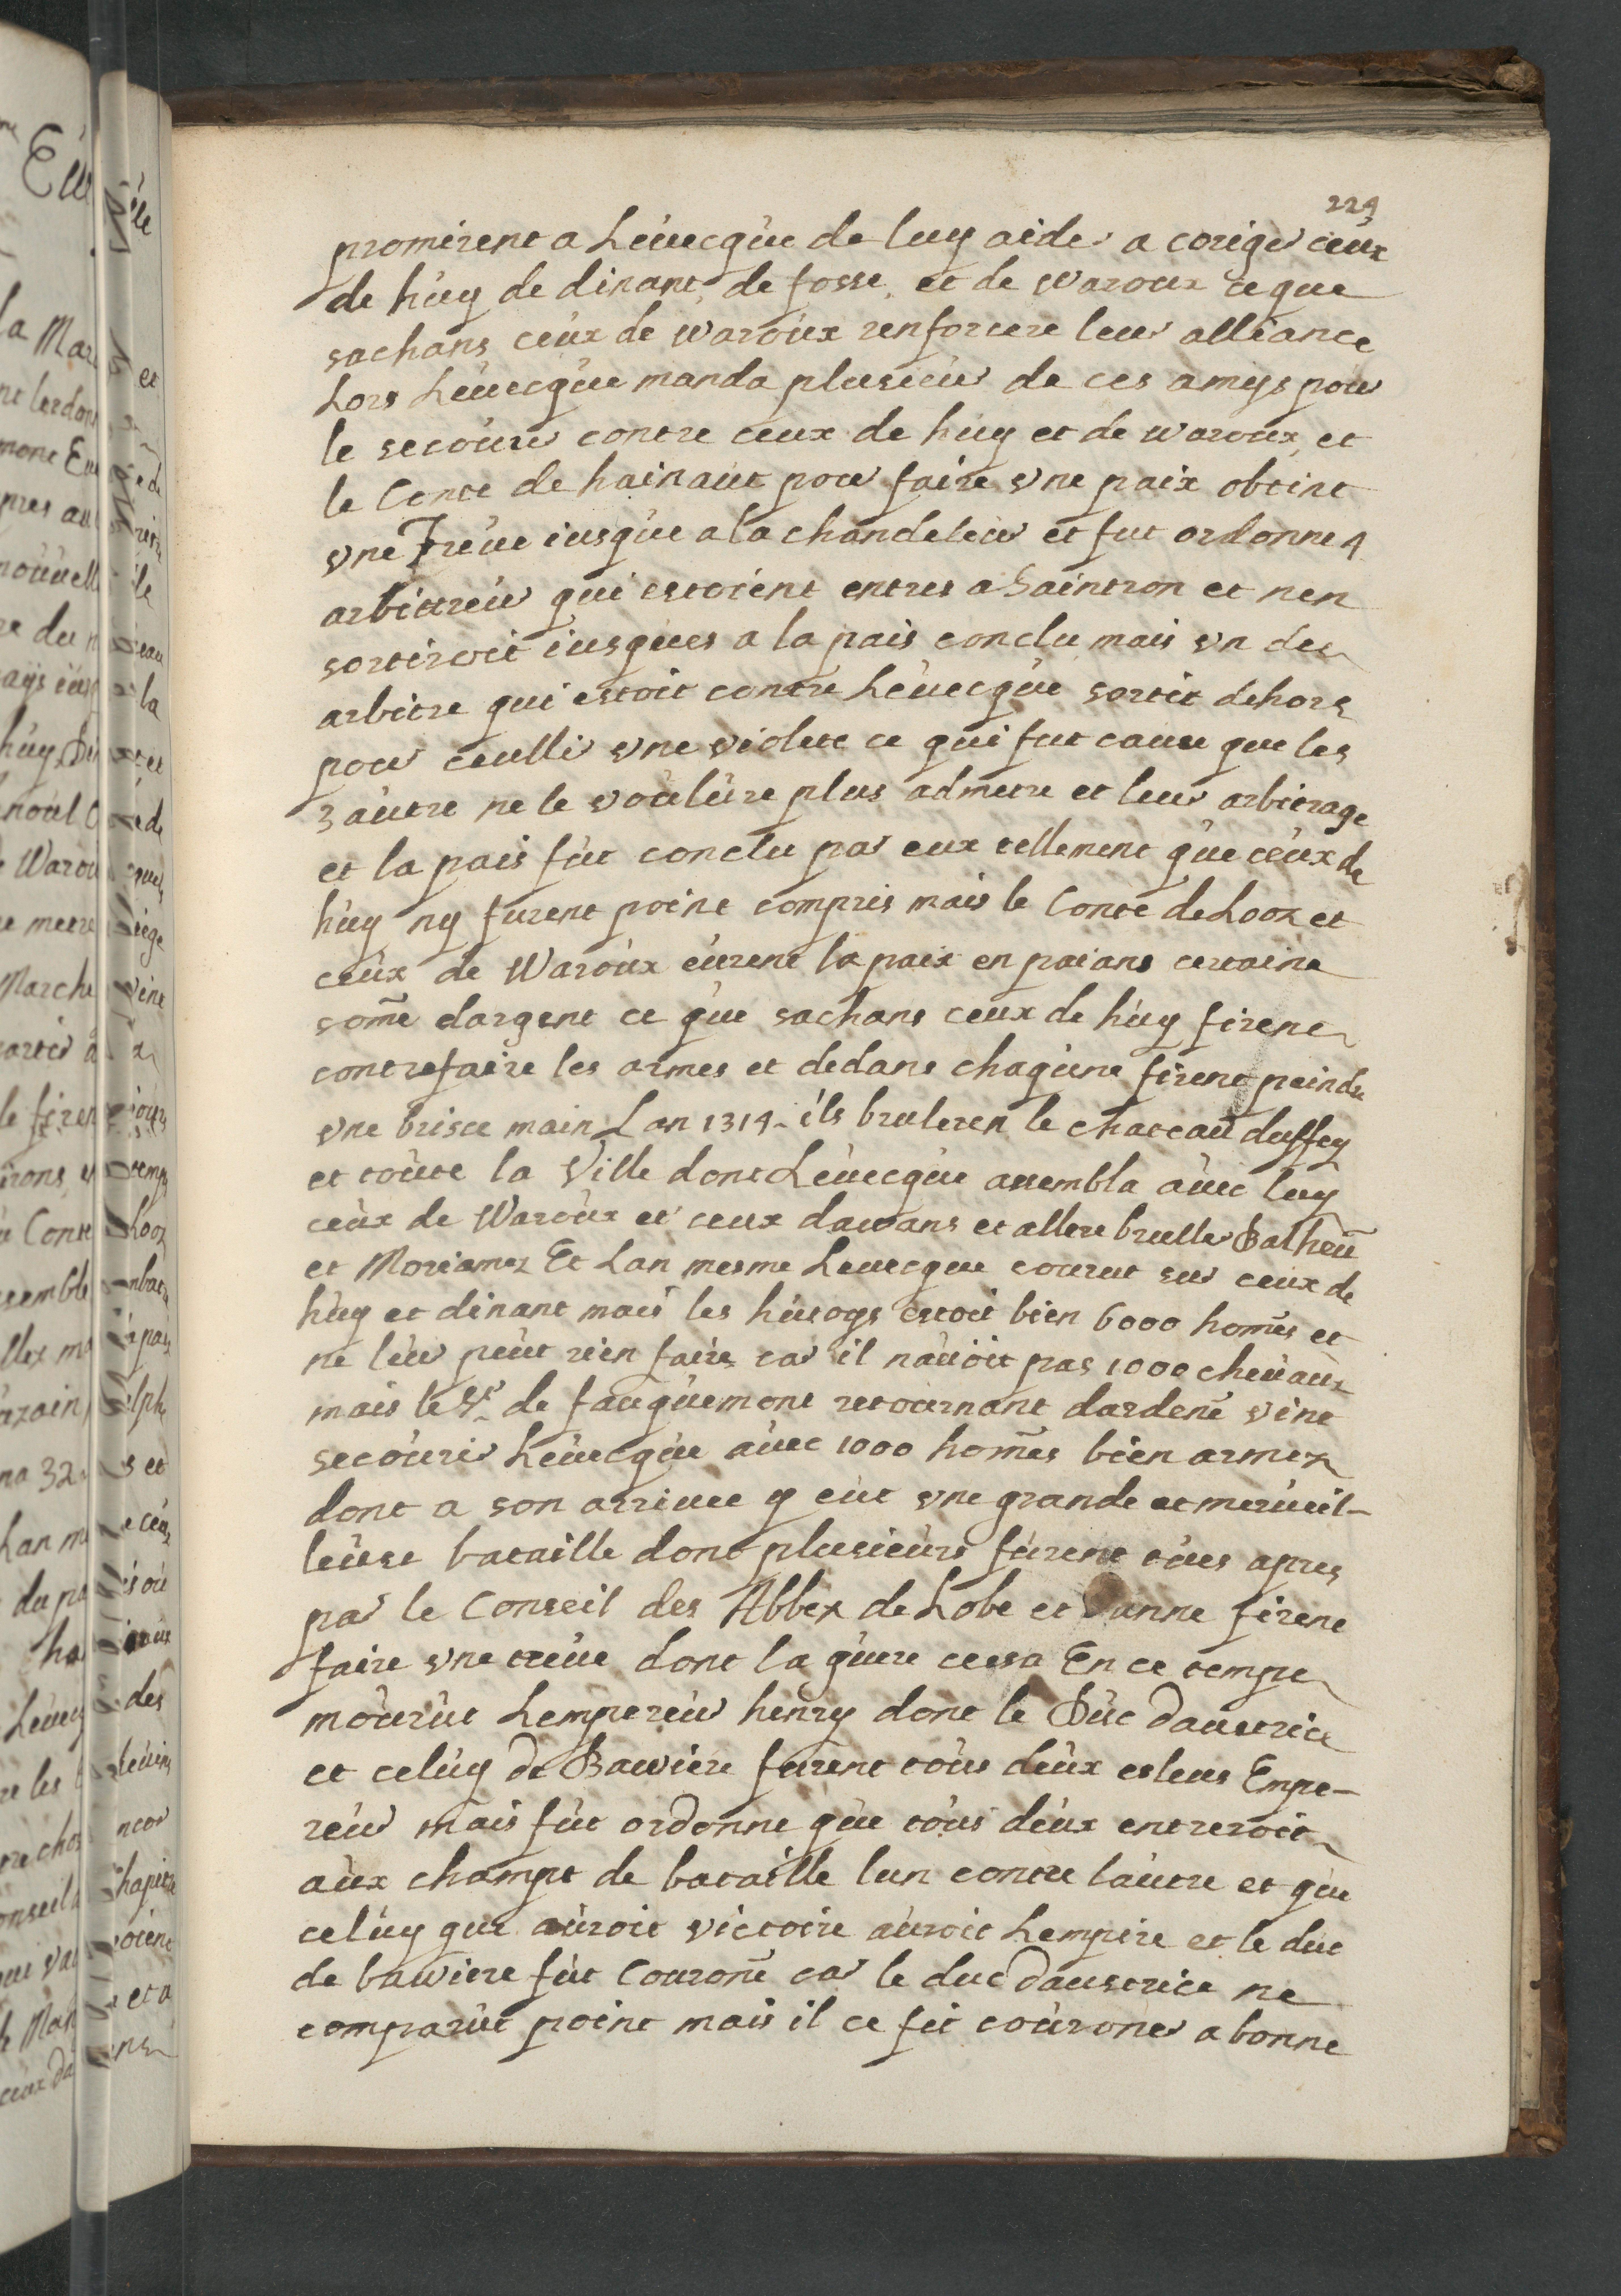 224
promirent a Leuecque de luy aider a coriger ceux
de huy de dinant, de fosse, et de waroux ce que
sachans ceux de waroux renforcere leur alliance
Lors Leuecque manda plusieur de ces amys pour
le secourir contre ceux de huy et de waroux, et
le Conte de hainaut pour faire vne paix obtint
vne Treue iusque a la chandeleur et fut ordonne 4
arbittreur qui estoient entres a Saintron et nen
sortiroit iusques a la pais conclu, mais vn des
arbitre qui estoit contre Leuecque sortit dehors
pour ceullir vne violete ce qui fut cause que les
3 autre ne le voulure plus admetre et leur arbitrage
et la pais fut conclu par eux tellement que ceux de
huy ny furent point compris mais le Conte de Looz et
ceux de Waroux eurent la paix en paians certaine
some dargent ce que sachans ceux de huy firent
contrefaire les armes et dedans chaqune firent peindre
vne brisee main Lan 1314. ils bruleren le chateau duffey
et toute la Ville dont Leuecque assembla auec luy
ceux de Waroux et ceux dawans et allere bruller Balheu
et Moriamez Et Lan mesme Leuecque courut sur ceux de
huy et dinant mais les hutoys estoit bien 6000 homes et
ne leur peut rien faire car il nauoit pas 1000 cheuaux
mais le Sr de fauquemont retournant dardene vint
secourir Leuecque auec 1000 homes bien armez
dont a son arriuee y eut vne grande et merueil-
leuse bataille dont plusieurs furent tues apres
par le Conseil des Abbez de Lobe et Danne firent
faire vne treue dont la guere cessa En ce temps
mourut Lempereur henry dont le Duc daustrice
et celuy de Bawiere furent tous deux esleus Empe-
reur mais fut ordonne que tous deux entreroit
aux champt de bataille lun contre lautre et que
celuy que auroit victoire auroit Lempire et le duc
de bawiere fut Courone car le duc daustrice ne
comparut point mais il ce fit couroner a bonne